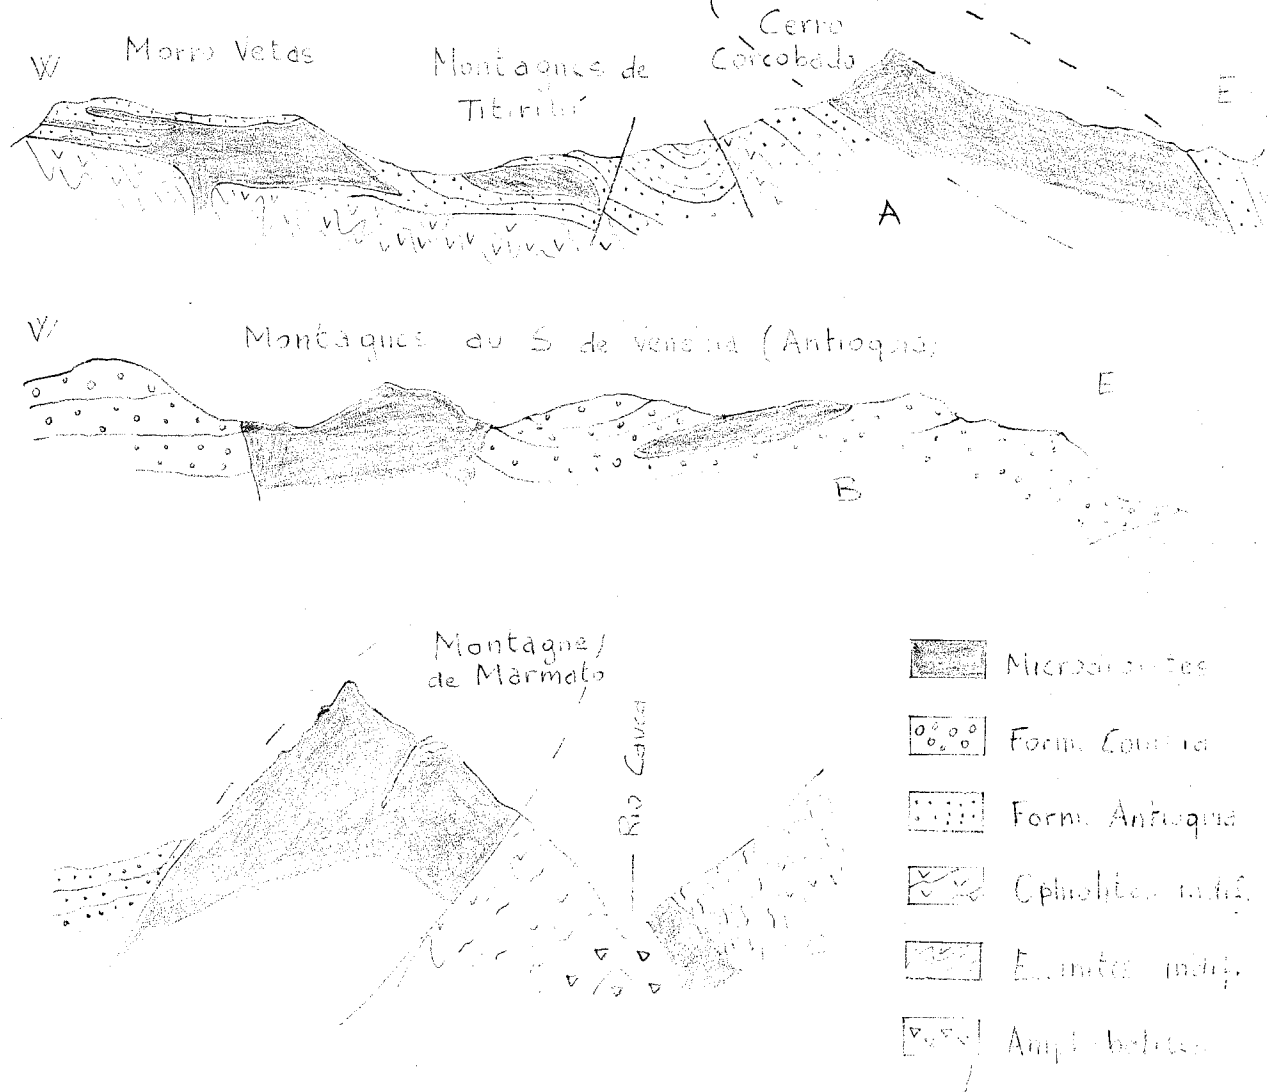 W
Morro Vetas
Montagnes de
Titiribí
Cerro
Corcobado
E
A
W
Montagnes au S de (Antioquia)
E
B
Montagne
de Marmato
Rio Cauca
Microdiorites
Form.
Form. Antioquia
Ophiolites indif.
indif.
Amphibolites